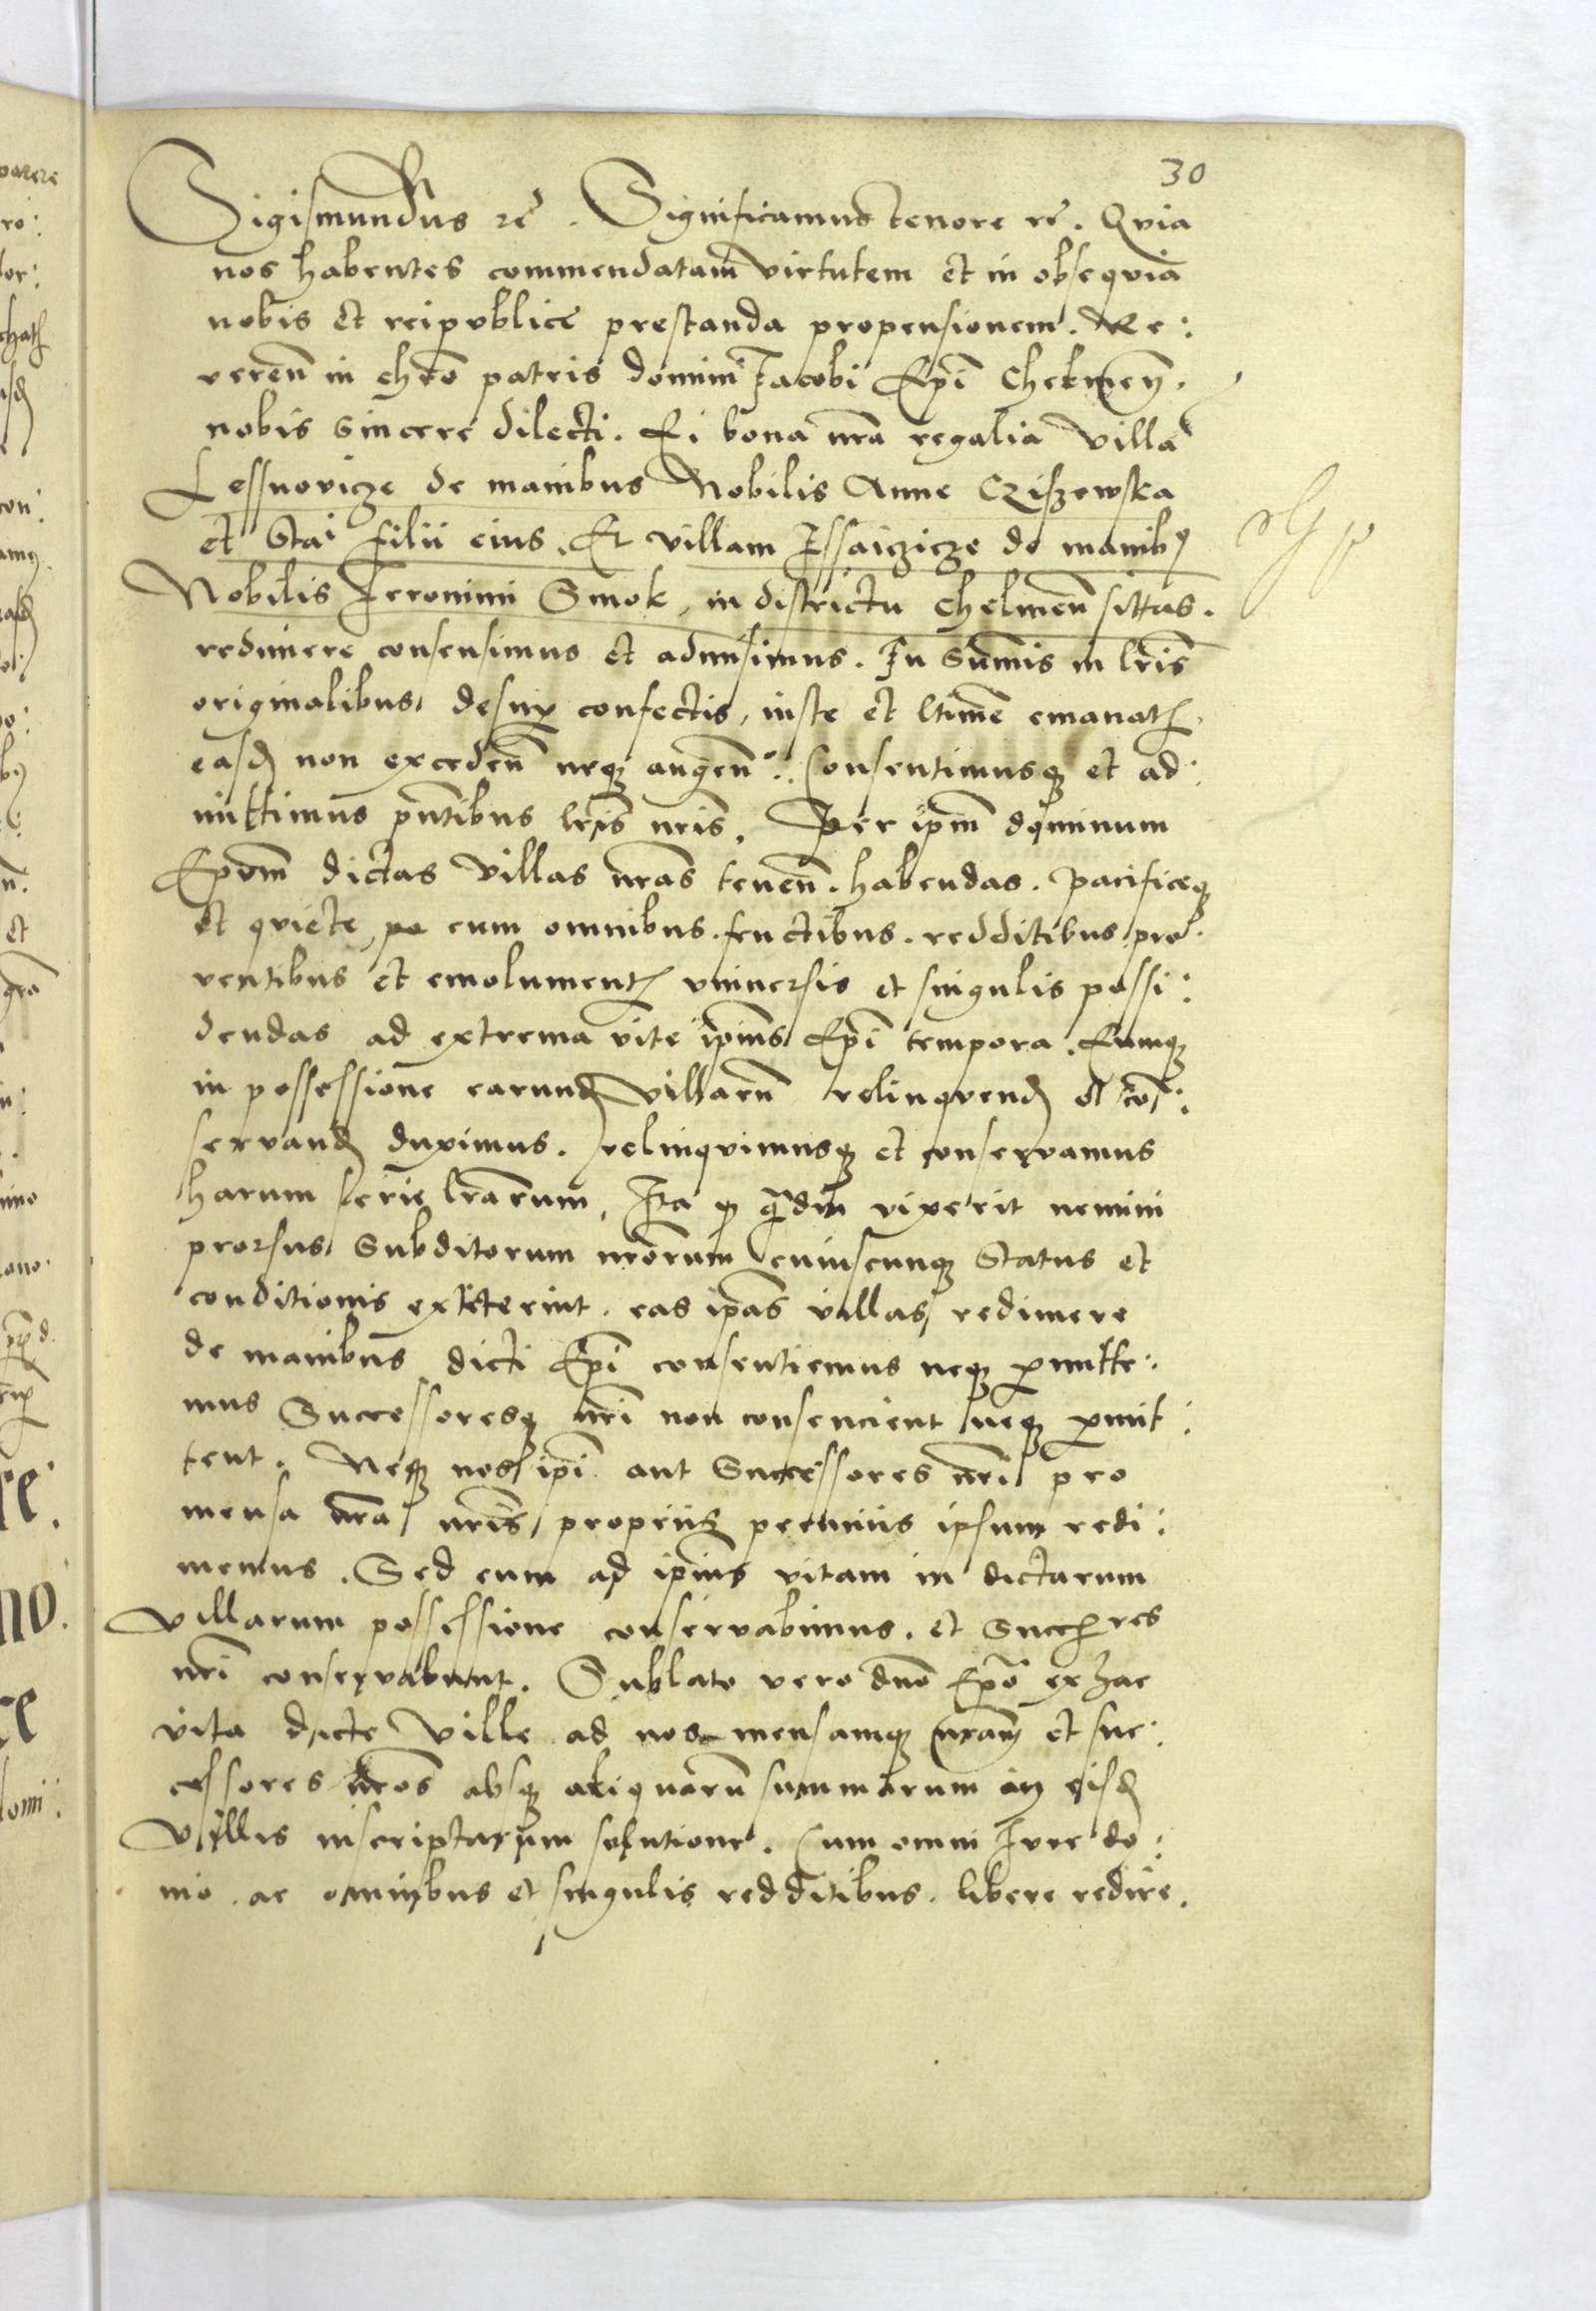 30
Sigismundus rē. Significamus tenore rē. Qvia
nos habentes commendatam virtutem et in obseqvia
nobis et reipvblice prestanda propensionem. Re:
veren̄ in chr̄o patris domini Jacobi Ep̄i Chelmen̄.
nobis sincere dilecti. Ei bona nr̄a regalia villā
Lessnovicze de manibus Nobilis Anne Cziszewska
et Stai filii eius. Et villam Jssaiczicze de manibꝫ
Nobilis Jeronimi Smok, in districtu Chelmen̄ sittas.
redimere consensimus et admisimus. In Summis in lr̄is
originalibus desup̱ confectis, iuste et ltime emanatꝭ
easđ non exceden̄ neqꝫ augen̄. Consentimusqꝫ et ad:
mittimus pn̄tibus lr̄is nr̄is. Per ip̄m dominum
Ep̄om dictas villas nr̄as tenen̄. habendas. pacificeqꝫ
et qviete, cum omnibus. fructibus. redditibus pro:
ventibus et emolumentꝭ vniuersis et singulis possi:
dendas ad extrema vite ip̄ius Ep̄i tempora. Eumqꝫ
in possessione earunđ villarū relinqvenđ et con̄:
servanđ duximus. relinqvimusqꝫ et conservamus
harum serie lr̄arum, Ita qđ q̄̄diu vixerit nemini
prorsus Subditorum nr̄orum cuiuscunqꝫ Status et
conditionis extiterint. eas ip̄as villas redimere
de manibus dicti Ep̄i consentiemus neqꝫ p̱mitte:
mus Successoresqꝫ nr̄i non consencient neqꝫ p̱mit:
tent. Neqꝫ nos ip̄i aut Successores nr̄i pro
mensa nr̄a nr̄is propriis pecuniis ipsum redi:
memus. Sed eum ad ip̄ius vitam in dictarum
villarum possessione conservabimus. et Succꝭres
nr̄i conservabunt. Sublato vero dn̄o Ep̄o ex hac
vita dicte ville ad nos mensamqꝫ nr̄am et suc:
cessores nr̄os absqꝫ aliqvarū summarum in eisđ
villis inscriptarum solutione. Cum omni Jvre do:
mio. ac omnibus et singulis redditibus. libere redire.